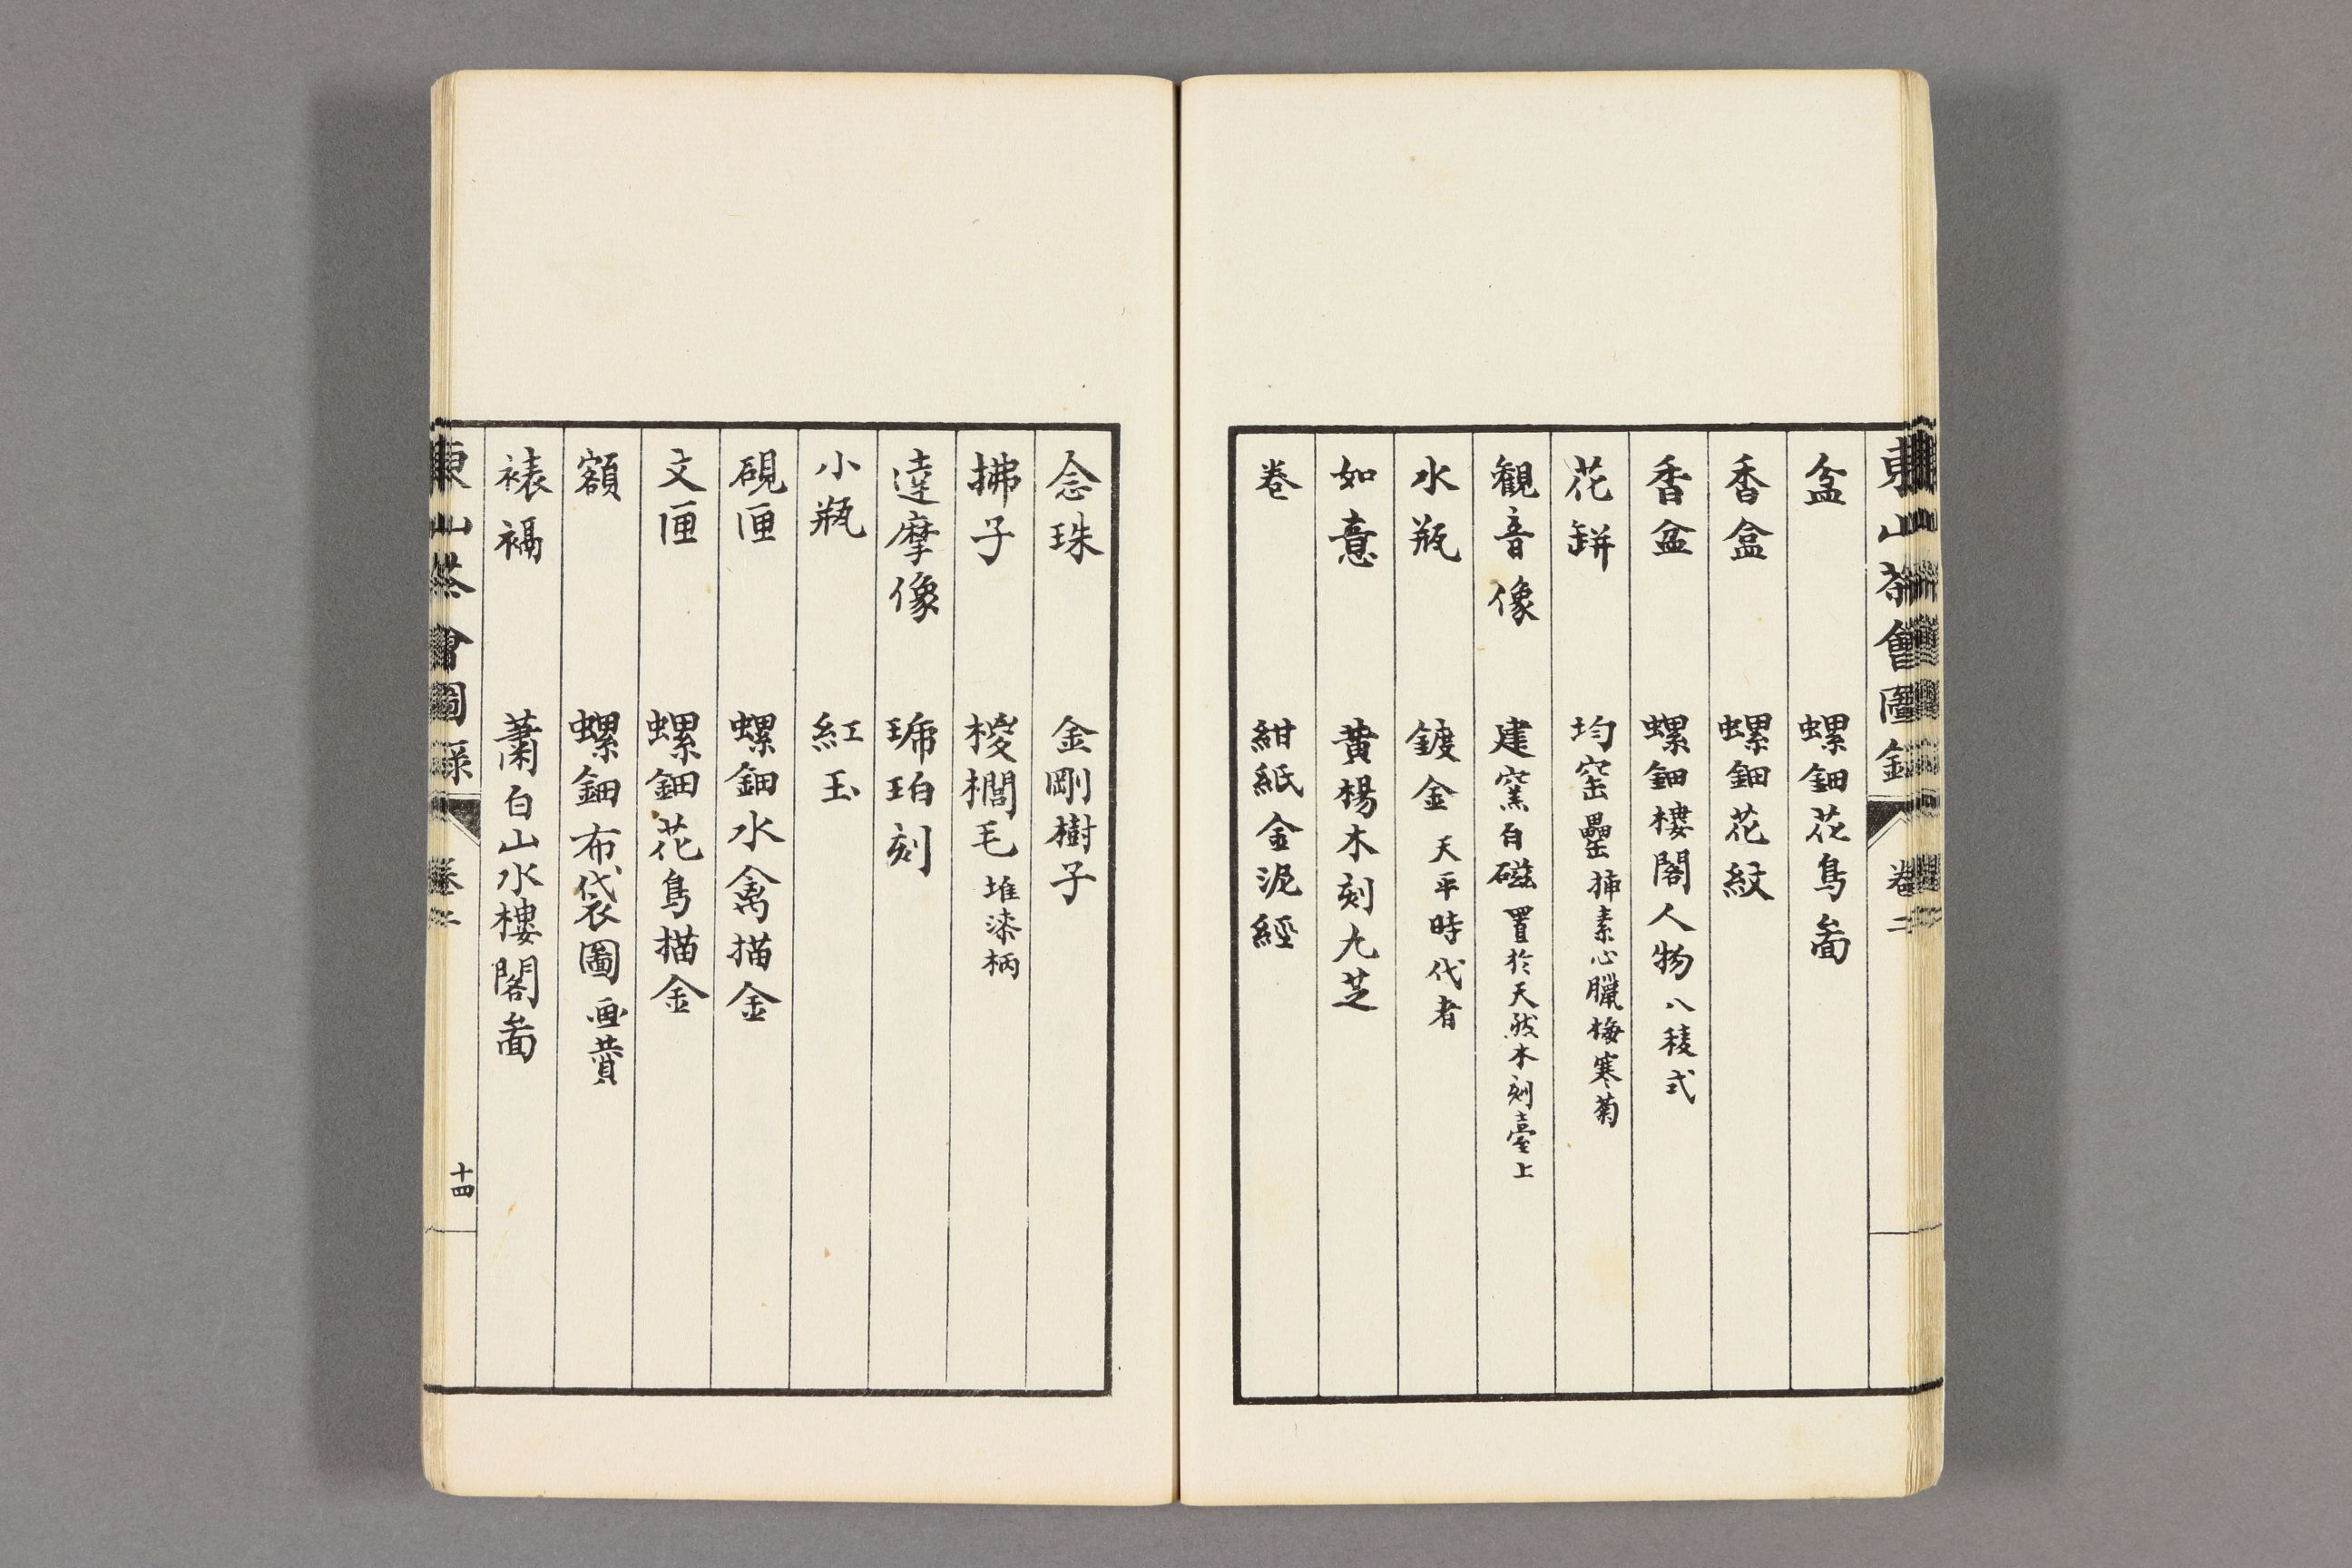 東山茶會圖錄 卷二
盆 螺鈿花鳥啚
香盒 螺鈿花紋
香盆 螺鈿樓閣人物 八稜式
花缾 均窑罍 挿素心臘梅寒菊
観音像 建窯白磁 置於天然木刻臺上
水瓶 鍍金 天平時代者
如意 黄楊木刻九芝
卷 紺紙金泥經
念珠 金剛樹子
拂子 椶櫚毛 堆漆柄
達摩像 琥珀刻
小瓶 紅玉
硯匣 螺鈿水禽描金
文匣 螺鈿花鳥描金
額 螺鈿布袋圖 画賛
裱褟 蕭白山水樓閣啚
東山茶會圖錄 卷二 十四